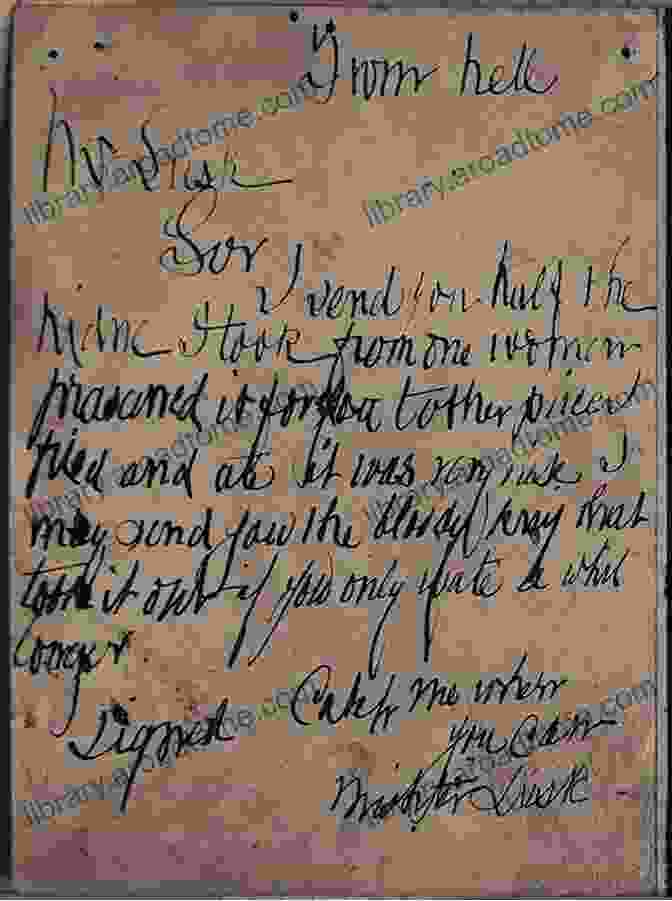 From hell
library.arcadtome.com
library.arcadtome.com
Mr Lusk
Sor
I send you half the
Kidne I took from one women
prasarved it for you tother piece I
fried and ate it was very nise I
may send you the bloody knif that
took it out if you only wate a whil
longer
signed
Catch me when
you can
Mishter Lusk
library.arcadtome.com